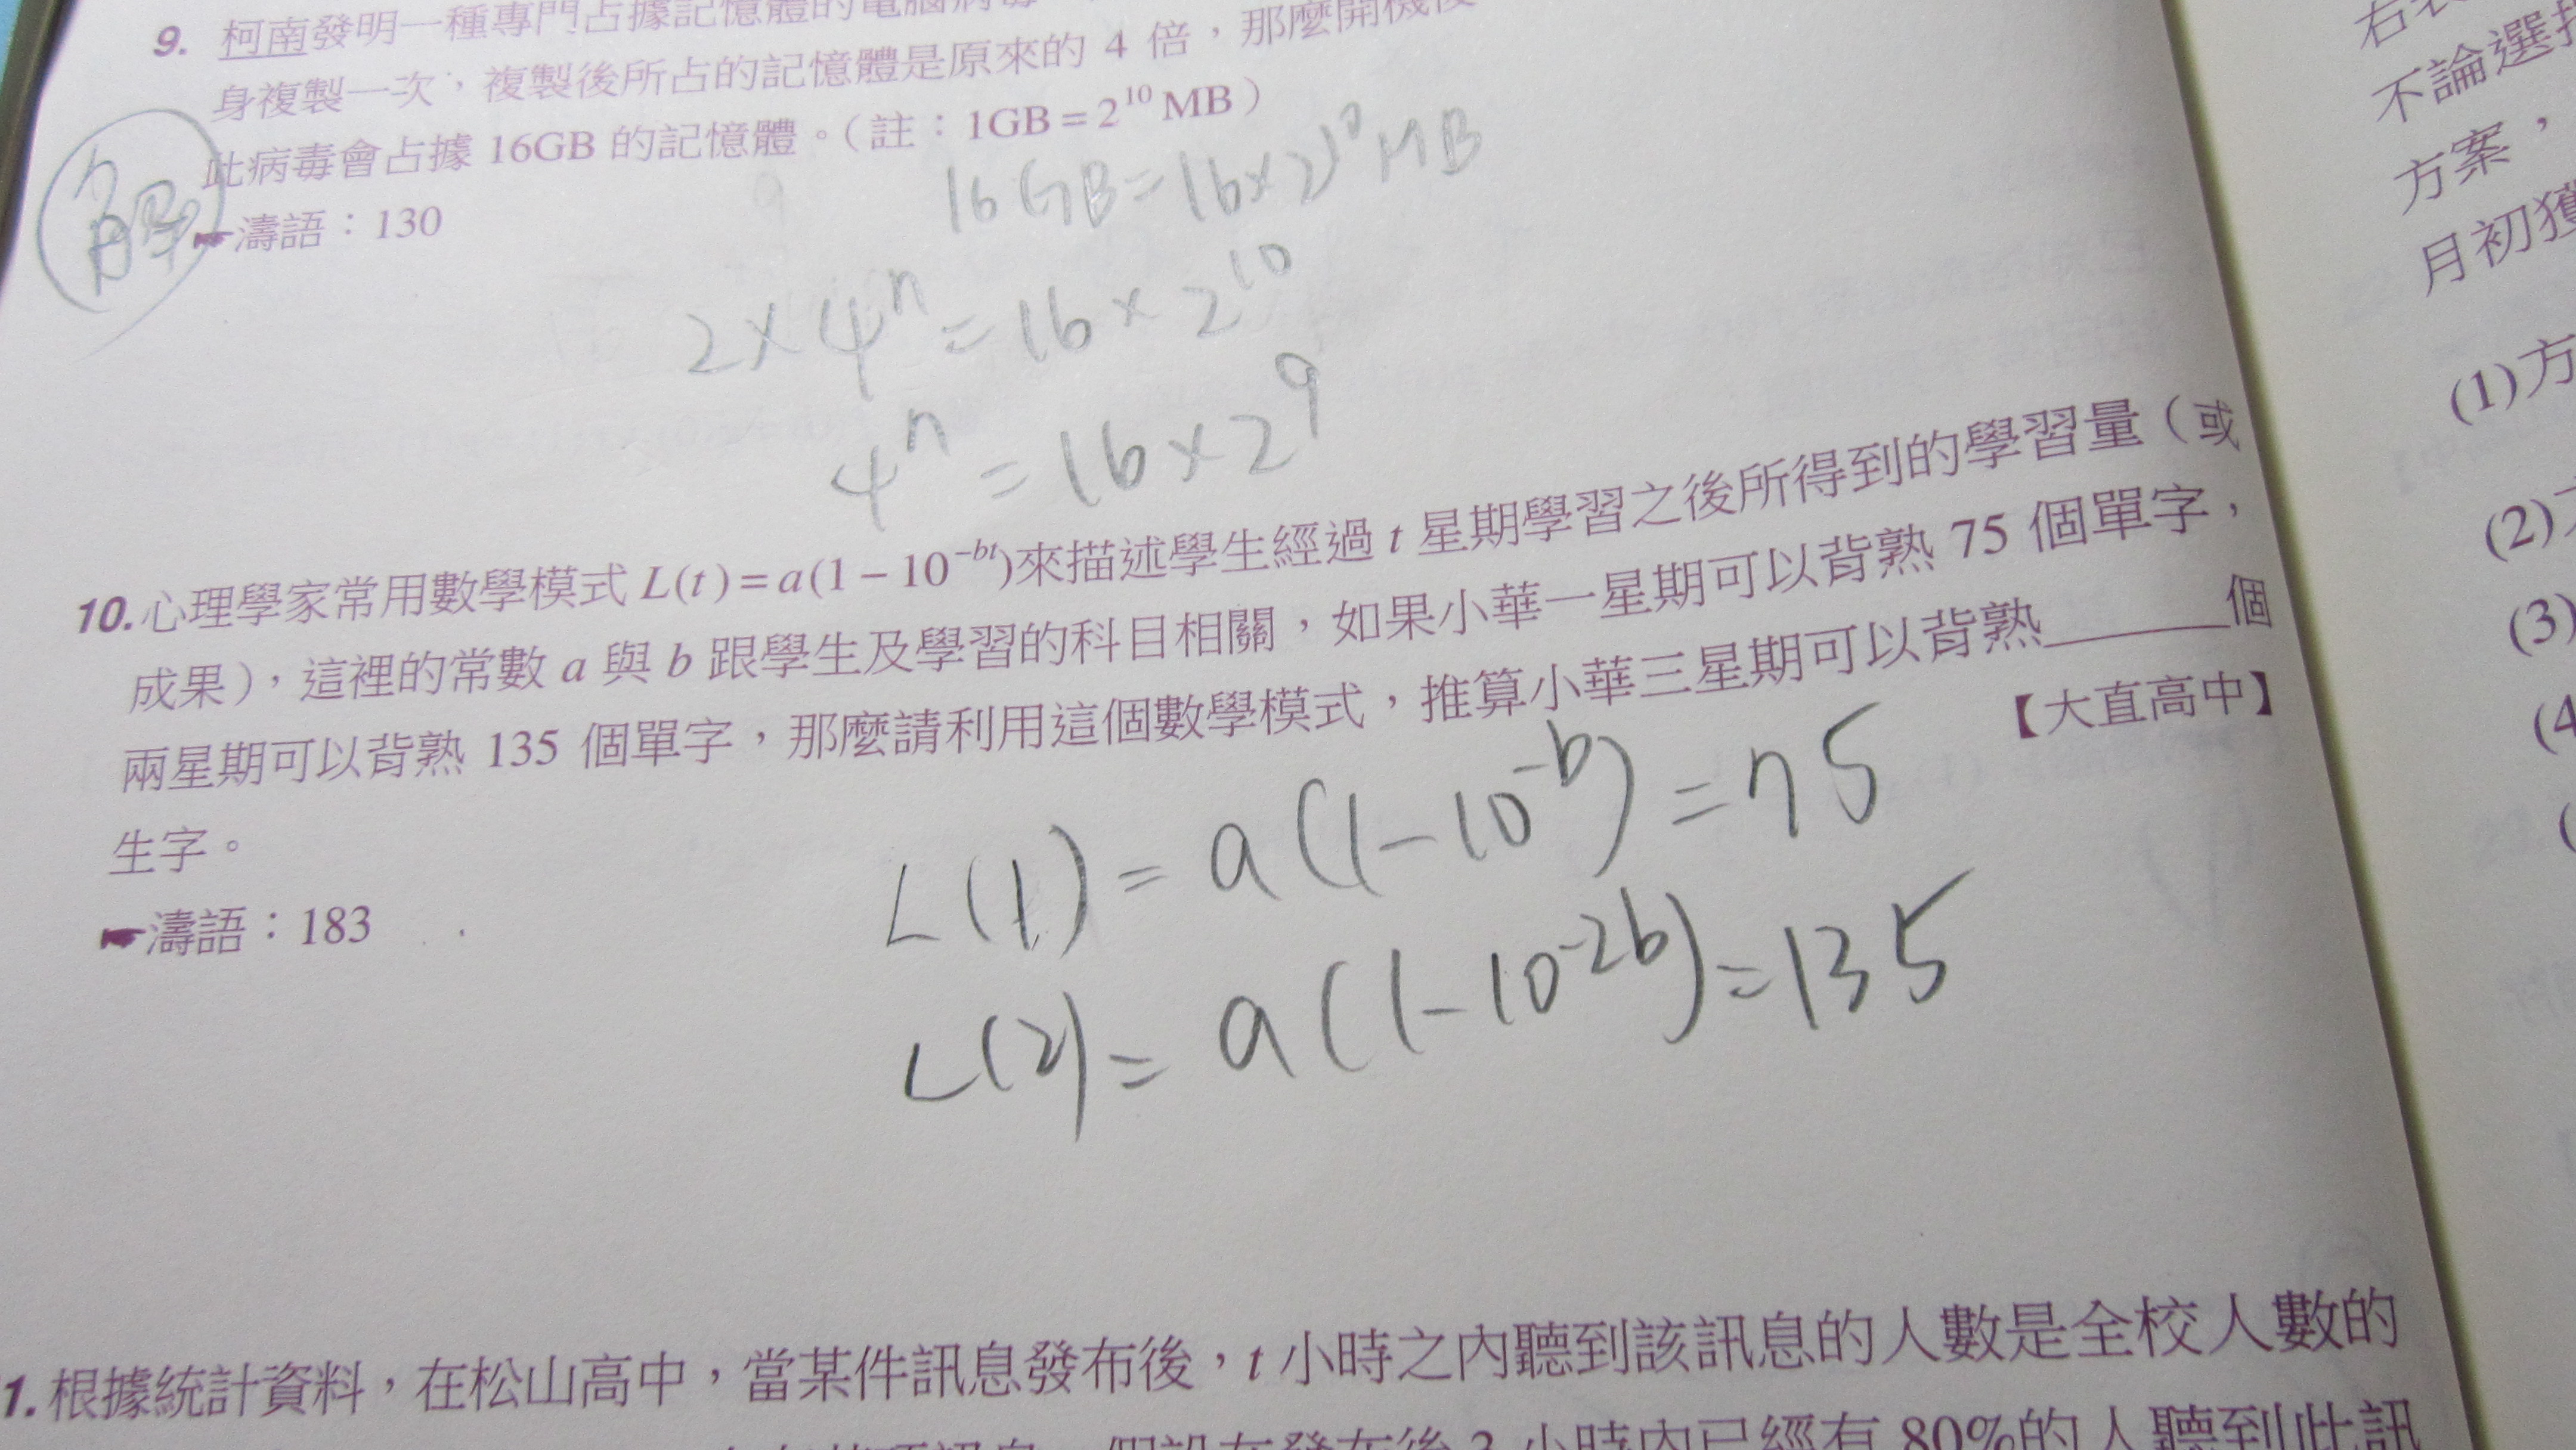 9. 柯南發明一種專門占據記憶體的電腦病毒
身複製一次，複製後所占的記憶體是原來的 4 倍，那麼開機後
此病毒會占據 16GB 的記憶體。（註：1GB = 2^10 MB）
16GB = 16×2^10 MB
解
濤語：130
2×4^n = 16×2^10
4^n = 16×2^9
10. 心理學家常用數學模式 L(t) = a(1 − 10^−bt)來描述學生經過 t 星期學習之後所得到的學習量（或
成果），這裡的常數 a 與 b 跟學生及學習的科目相關，如果小華一星期可以背熟 75 個單字，
兩星期可以背熟 135 個單字，那麼請利用這個數學模式，推算小華三星期可以背熟______個
生字。
【大直高中】
濤語：183
L(1) = a(1−10^−b) = 75
L(2) = a(1−10^−2b) = 135
1. 根據統計資料，在松山高中，當某件訊息發布後，t 小時之內聽到該訊息的人數是全校人數的
假設在發布後 3 小時內已經有 80%的人聽到此訊
不論選擇
方案，
月初獲
(1)方
(2)
(3)
(4